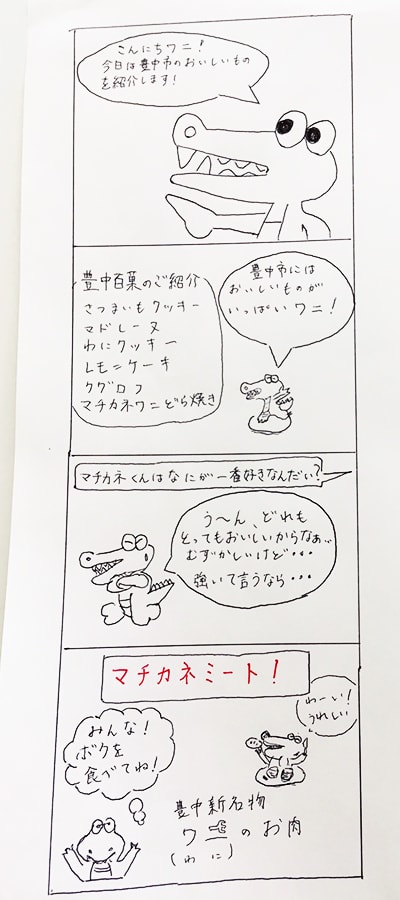 こんにちワニ！
今日は豊中市のおいしいもの
を紹介します！
豊中百菓のご紹介
さつまいもクッキー
マドレーヌ
わにクッキー
レモンケーキ
クグロフ
マチカネワニどら焼き
豊中市には
おいしいものが
いっぱいワニ！
マチカネくんはなにが一番好きなんだい？
う〜ん、どれも
とってもおいしいからなぁ…
むずかしいけど・・・
強いて言うなら・・・
マチカネミート！
わーい！
うれしい
みんな！
ボクを
食べてね！
豊中新名物
ワニのお肉
(わに)